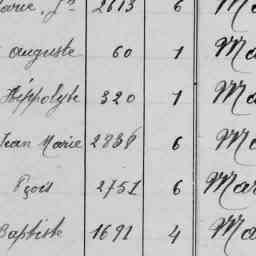 Marie, Jn 2613 6 Ma
Auguste 60 1 Ma
Hippolyte 320 1 Ma
Jean Marie 2838 6 Ma
Fçois 2751 6 Mar
Baptiste 1691 4 Ma